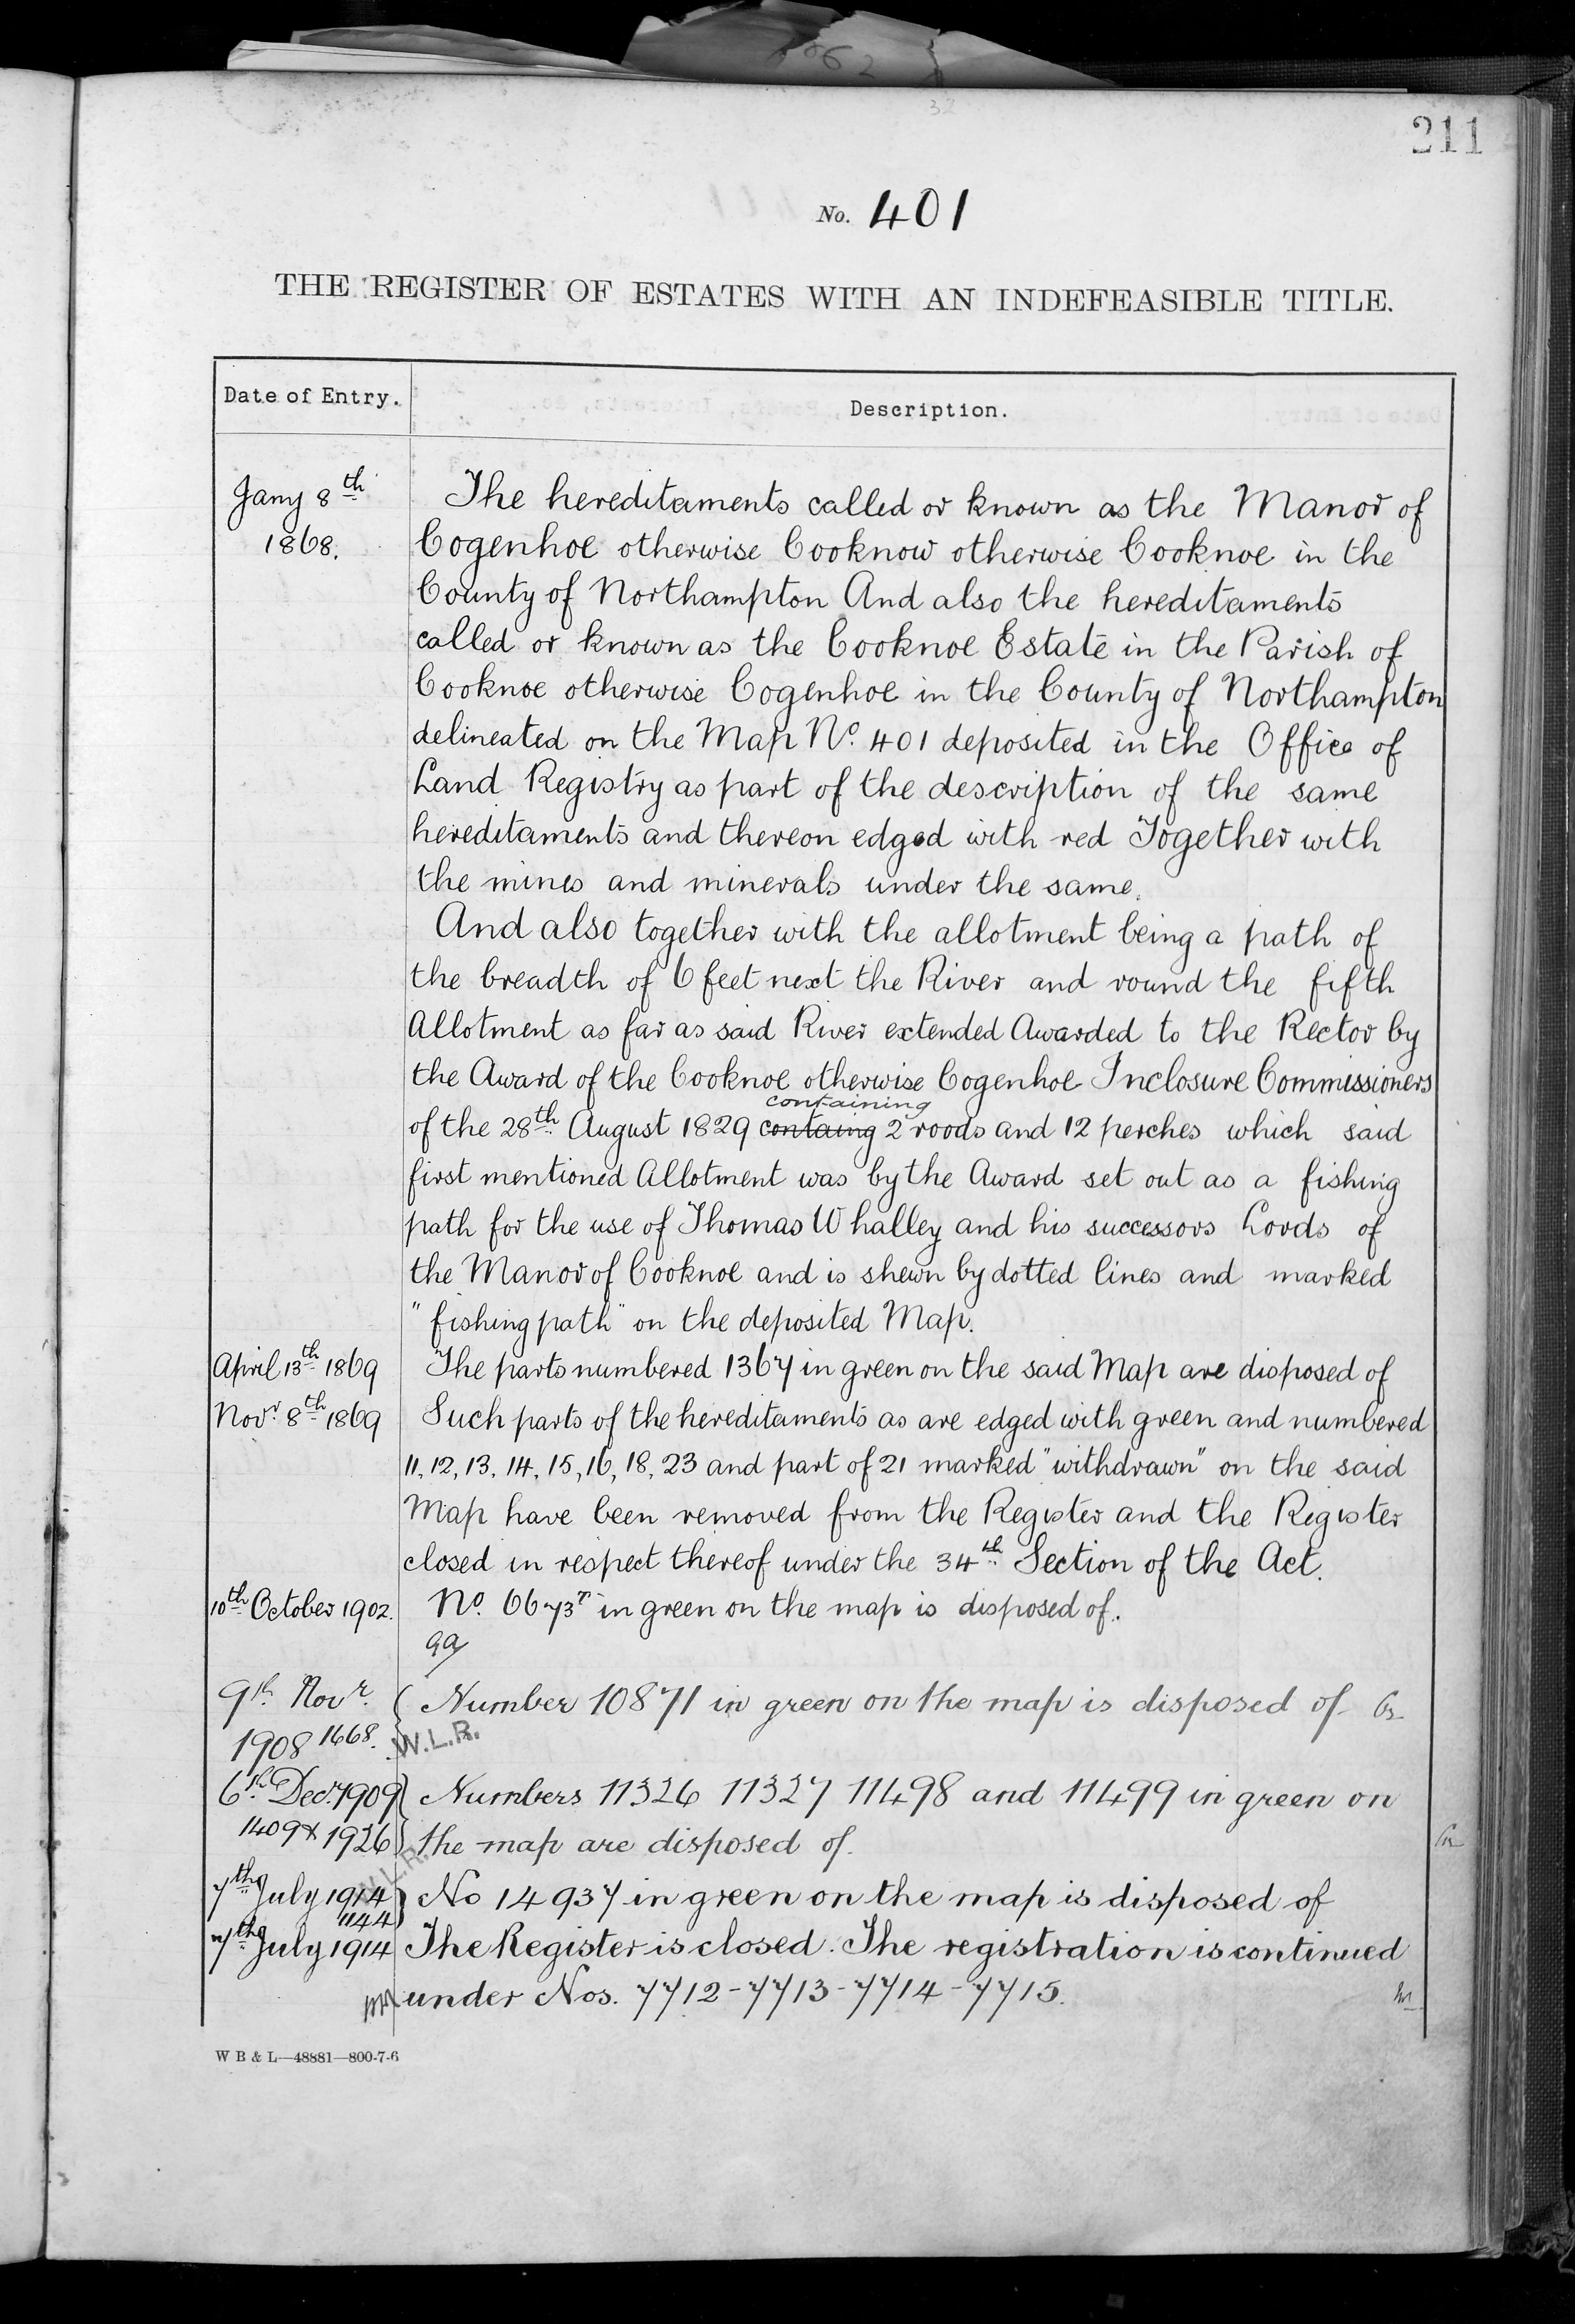 211
No. 401
THE REGISTER OF ESTATES WITH AN INDEFEASIBLE TITLE.
Date of Entry.
Description.
Jany 8th
1868.
The hereditaments called or known as the Manor of
Cogenhoe otherwise Cooknow otherwise Cooknoe in the
County of Northampton And also the hereditaments
called or known as the Cooknoe Estate in the Parish of
Cooknoe otherwise Cogenhoe in the County of Northampton
delineated on the Map No. 401 deposited in the Office of
Land Registry as part of the description of the same
hereditaments and thereon edged with red Together with
the mines and minerals under the same.
And also together with the allotment being a path of
the breadth of 6 feet next the River and round the fifth
Allotment as far as said River extended Awarded to the Rector by
the Award of the Cooknoe otherwise Cogenhoe Inclosure Commissioners
containing
of the 28th August 1829 containg 2 roods and 12 perches which said
first mentioned Allotment was by the Award set out as a fishing
path for the use of Thomas Whalley and his successors Lords of
the Manor of Cooknoe and is shewn by dotted lines and marked
"fishing path" on the deposited Map.
April 13th 1869 The parts numbered 1367 in green on the said Map are disposed of
Novr 8th 1869 Such parts of the hereditaments as are edged with green and numbered
11, 12, 13, 14, 15, 16, 18, 23 and part of 21 marked "withdrawn" on the said
Map have been removed from the Register and the Register
closed in respect thereof under the 34th Section of the Act.
10th October 1902. No. 6673 in green on the map is disposed of.
9th Novr. Number 10871 in green on the map is disposed of
1908 1668. W.L.R.
6th Decr. 1909 Numbers 11326 11327 11498 and 11499 in green on
1409 & 1926 the map are disposed of.
W.L.R.
7th July 1914 No 14937 in green on the map is disposed of
1144
7th July 1914 The Register is closed. The registration is continued
under Nos. 7712-7713-7714-7715.
W B & L—48881—800-7-6